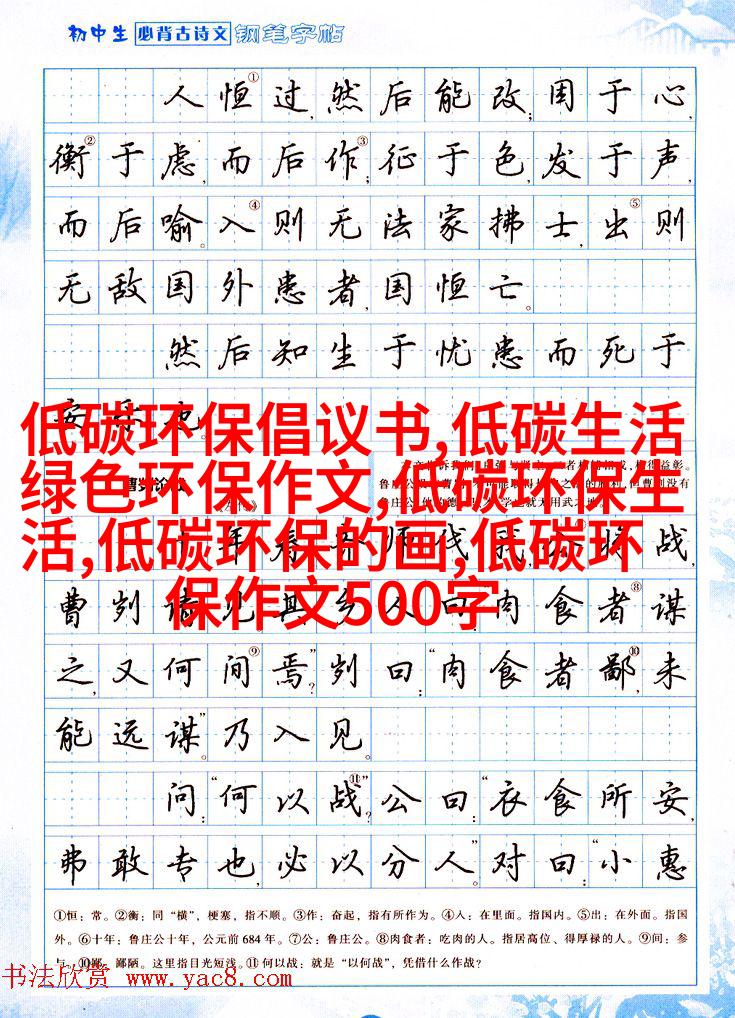 初中生 必背古诗文 钢笔字帖
人恒①过,然后能改;困于心,
衡②于虑,而后作③;征于色,发于声,
而后喻。入④则无法家拂士,出⑤则
无敌国外患者,国恒亡。
然后知生于忧患而死于
低碳环保倡议书,低碳生活
绿色环保作文,低碳环保生
活,低碳环保的画,低碳环
保作文500字
曹刿请见。其乡人曰:“肉食者⑧谋
之,又何间⑨焉?”刿曰:“肉食者鄙⑩,未
能远谋。”乃入见。
问:“何以战⑪?”公曰:“衣食所安,
弗敢专也,必以分人。”对曰:“小惠
①恒:常。②衡:同“横”,梗塞,指不顺。③作:奋起,指有所作为。④入:在里面。指国内。⑤出:在外面。指国
外。⑥十年:鲁庄公十年,公元前684年。⑦公:鲁庄公。⑧肉食者:吃肉的人。指居高位、得厚禄的人。⑨间:参
与。⑩鄙:鄙陋。这里指目光短浅。⑪何以战:就是“以何战”,凭借什么作战?
书法欣赏 www.yac8.com